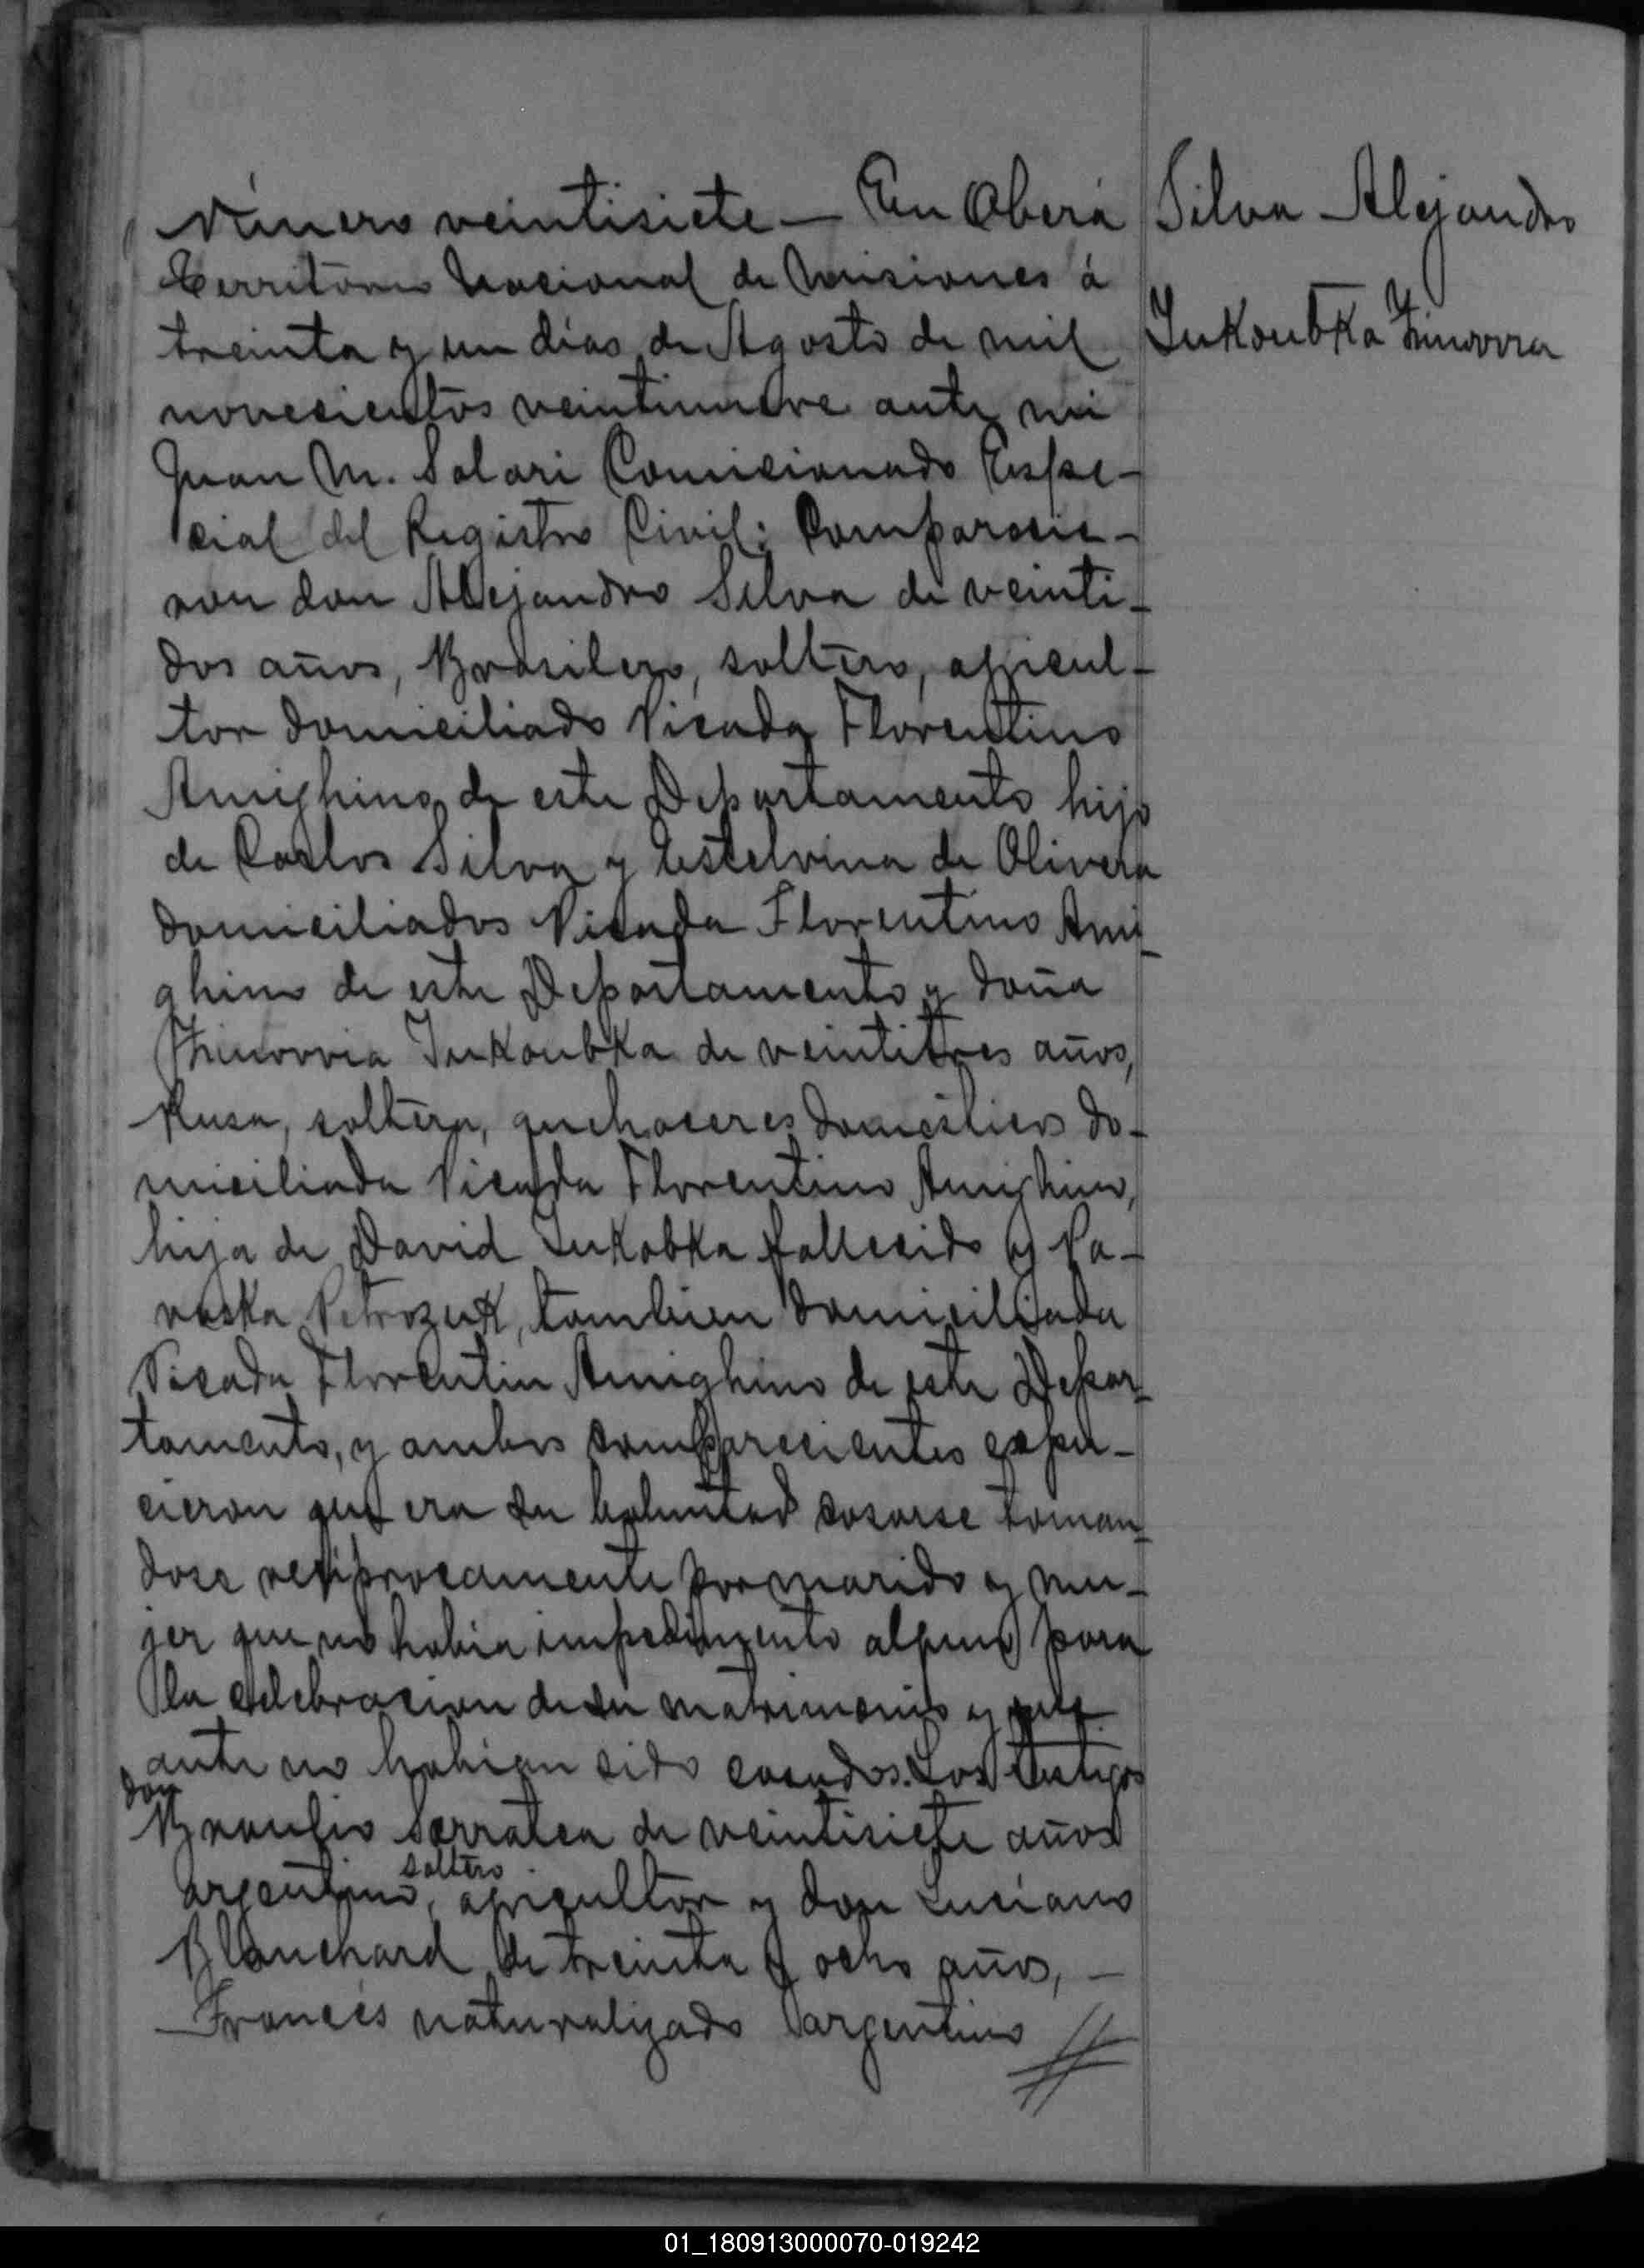 Número veintisiete — En Oberá
Silva Alejandro
Territorio Nacional de Misiones á
treinta y un dias de Agosto de mil
Jukoubka
novecientos veintinueve ante mi
Juan M. Solari Comicionado Espe-
cial del Registro Civil: Comparecie-
ron don Alejandro Silva de veinti-
dos años, Brasilero, soltero, agricul-
tor domiciliado Picada Florentino
Amighino de este Departamento hijo
de Carlos Silva y Estelvina de Olivera
domiciliados Picada Florentino Ami-
ghino de este Departamento y doña
Jukoubka de veintitres años,
Rusa, soltera, quehaceres domésticos do-
miciliada Picada Florentino Amighino,
hija de David Jukobka fallecido y Pa-
raska Petrozuk, tambien domiciliada
Picada Florentin Amighino de este Depar-
tamento, y ambos comparecientes expu-
cieron que era su boluntad casarse toman-
dose reciprocamente por marido y mu-
jer que no habia impedimento alguno para
la celebracion de su matrimonio y que
ante no habian sido casados. Los testigos
don
Braulio Sarratea de veintisiete años
soltero
argentino, agricultor y don Luciano
Blanchard de treinta y ocho años, —
Francés naturalizado argentino //
01_180913000070-019242